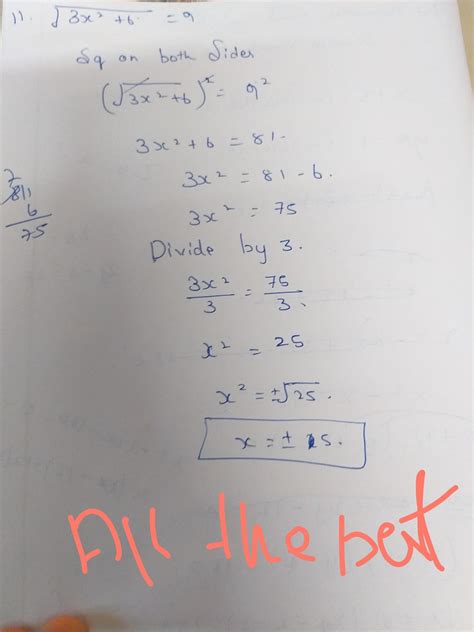 11. √3x² + 6 = 9
Sq on both Sides
(√3x² + 6)² = 9²
3x² + 6 = 81.
3x² = 81 - 6.
3x² = 75
7
811
6
75
Divide by 3.
3x²/3 = 75/3.
x² = 25
x² = ±√25.
x = ± 5.
All the best